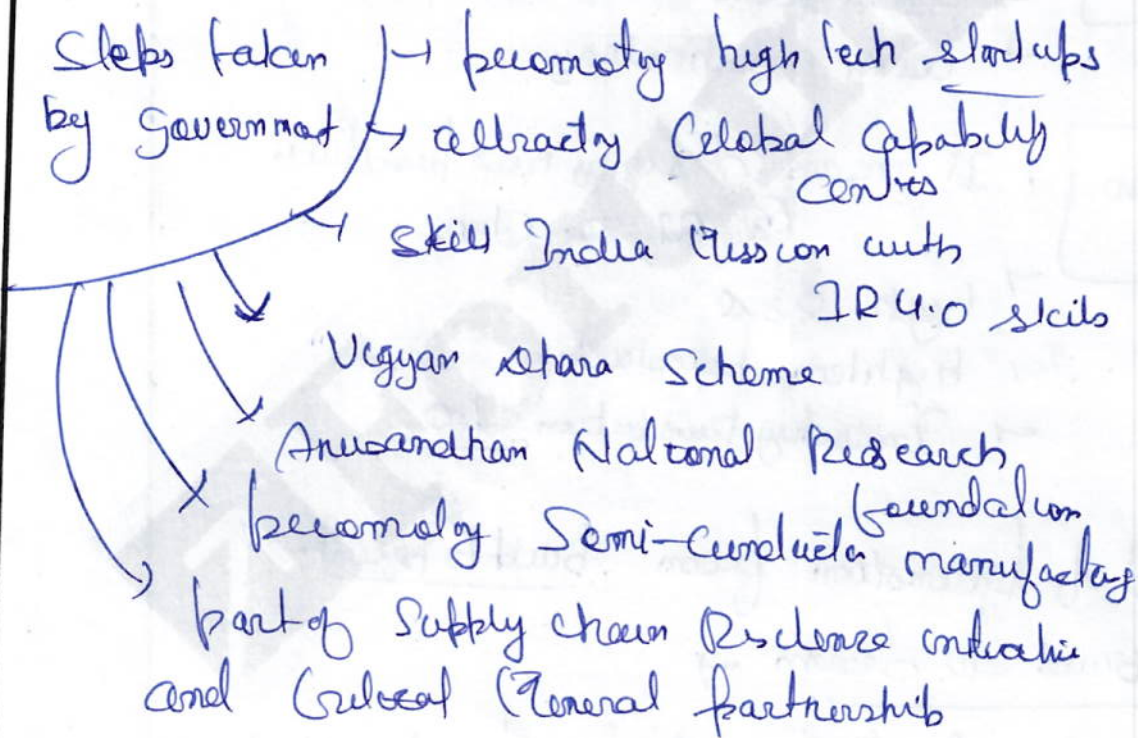 Steps taken → promoting high tech startups
by Government → attracting Global Capability
Centres
→ Skill India Mission with
IR 4.0 skills
Vigyan Dhara Scheme
Anusandhan National Research
foundation
promoting Semi-Conductor manufacturing
part of Supply chain Resilience initiative
and Mineral partnership